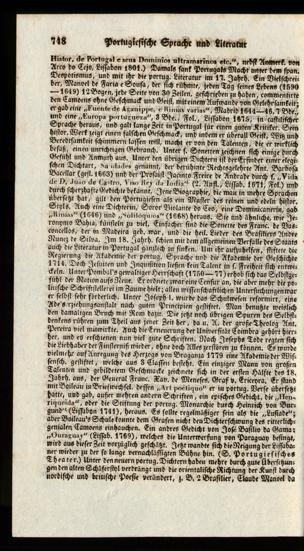 748 Portugiesische Sprache und Literatur
Histor. de Portugal e seus Dominios ultramarinos etc.", nebst Anmerk. von
Arco do Cego, Lissabon 1801.) Damals sank Portugals Macht unter dem span.
Despotismus, und mit ihr die portug. Literatur im 17. Jahrh. Ein Vielschrei-
ber, Manoel de Faria e Sousa, der sich rühmte, jeden Tag seines Lebens (1590
—1649) 12 Bogen, jede Seite von 30 Zeilen, geschrieben zu haben, commentirte
den Camoens ohne Geschmack und Geist, mit einem Aufwande von Gelehrsamkeit;
er gab eine „Fuente de Aganippe, o Rimas varias" Madrid 1644—46, 7 Bde.,
und eine „Europa portugueza", 3 Bde., Fol., Lissabon 1675, in
Sprache heraus, und galt lange Zeit in Portugal für einen guten Kritiker. Sein
histor. Werk zeigt einen falschen Geschmack, und indem er überall Geist, Witz und
Beredtsamkeit schimmern lassen will, macht er von den Talenten, die er wirklich
besaß, einen unrichtigen Gebrauch. Unter s. Sonetten zeichnen sich einige durch
Gefühl und Anmuth aus. Unter den übrigen Dichtern ist der Erfinder einer elegi-
schen Dichtart, Saudades genannt, der berühmte Rechtsgelehrte Ant. Barbosa
Bacellar (gest. 1663) und der Professor Jacinto Freire de Andrade durch s. „Vida
de D. Juão de Castro, Viso Rey da India" (2. Aufl., Lissab. 1671, Fol.) und
durch scherzhafte Gedichte bekannt. Jene Biographie, die man in mehre Sprachen
übersetzt hat, gilt den Portugiesen als ein Muster des reinen und edeln histor.
Styls. Auch eine Dichterin, Soror Violante do Ceo, eine Dominicanerin, gab
„Rimas" (1646) und „Soliloquios" (1668) heraus. Sie und ähnliche, wie Je-
ronymo Bahia, künsteln zu viel. Einfacher sind die Sonette des Franc. de Vas-
concellos, der in Madeira geb. war, und die heil. Lieder des Brasiliers Andre
Nunez de Silva. Im 18. Jahrh. schien mit dem allgemeinen Verfalle des Staats
auch die Literatur in Portugal gänzlich zu sinken. Um sie aufzuhelfen, stiftete die
Regierung die Akademie der portug. Sprache und die Akademie der Geschichte
1714. Doch Jesuiten und Inquisition ließen kein Talent in s. Freiheit sich entwi-
ckeln. Unter Pombal's gewaltiger Herrschaft (1750—77) erhob sich das Selbstge-
fühl der Nation aufs Neue. Er ordnete zwar eine Censur an, die aber mehr die po-
litische Schriftstellerei im Zaume hielt; allen wissenschaftlichen Unterricht hingegen war
er selbst sehr förderlich. Unter Joseph I. wurde das Schulwesen reformirt, eine
Adels-Erziehungsanstalt nach guten Principien gestiftet. Man benutzte weislich
den damaligen Bruch mit Rom dazu. Die jetzt noch übrigen Spuren des Selbst-
denkens rühren zum Theil aus jener Zeit her, da u. A. der große Theolog Ant.
Pereira viel mitwirkte. Auch die Erneuerung der Universität Coimbra gehört hier-
her, und es erschienen nun viel gute Schriften. Nach Josephs Tode regten sich
die Liebhaber der Finsterniß wieder, ohne doch Alles zerstören zu können. Es wurde
vielmehr auf Anregung des Herzogs von Braganza 1779 eine Akademie der Wis-
sensch. gestiftet, welche aus 3 Classen besteht. Ein einziger Mann von großen
Talenten und gebildetem Geschmacke zeichnete sich in der ersten Hälfte des 18.
Jahrh. aus, der General Franc. Xav. de Menesses, Graf v. Ericeyra. Er stand
mit Boileau in Briefwechsel, dessen „Art poétique" er in portug. Verse übersetzt
hatte, und gab, außer mehren andern Schriften, ein episches Gedicht, die „Hen-
riqueida", oder die Stiftung der portug. Monarchie durch Heinrich von Bur-
gund" (Lissabon 1741), heraus. Es sollte regelmäßiger sein als die „Lusiade";
aber Boileau's Schule konnte dem Grafen nicht den Dichterschwung des ritterlich-
genialen Camoens einhauchen. Ein andres Gedicht von José Basilio da Gama:
„Ouraguay" (Lissab. 1769), welches die Unterwerfung von Paraguay besingt,
wird aus dieser Zeit vorzüglich geschätzt. Jetzt wandte sich die Neigung der Lissabo-
ner wieder zu der so lange vernachlässigten Bühne hin. (S. Portugiesisches
Theater.) Unter den neuern portug. Dichtern haben mehre durch gute Übersetzun-
gen den alten Schäferstyl verdrängt und die orientalische Richtung der Kunst durch
nordische und britische Poesie verändert, z. B. 2 Brasilier, Claude Manoel da